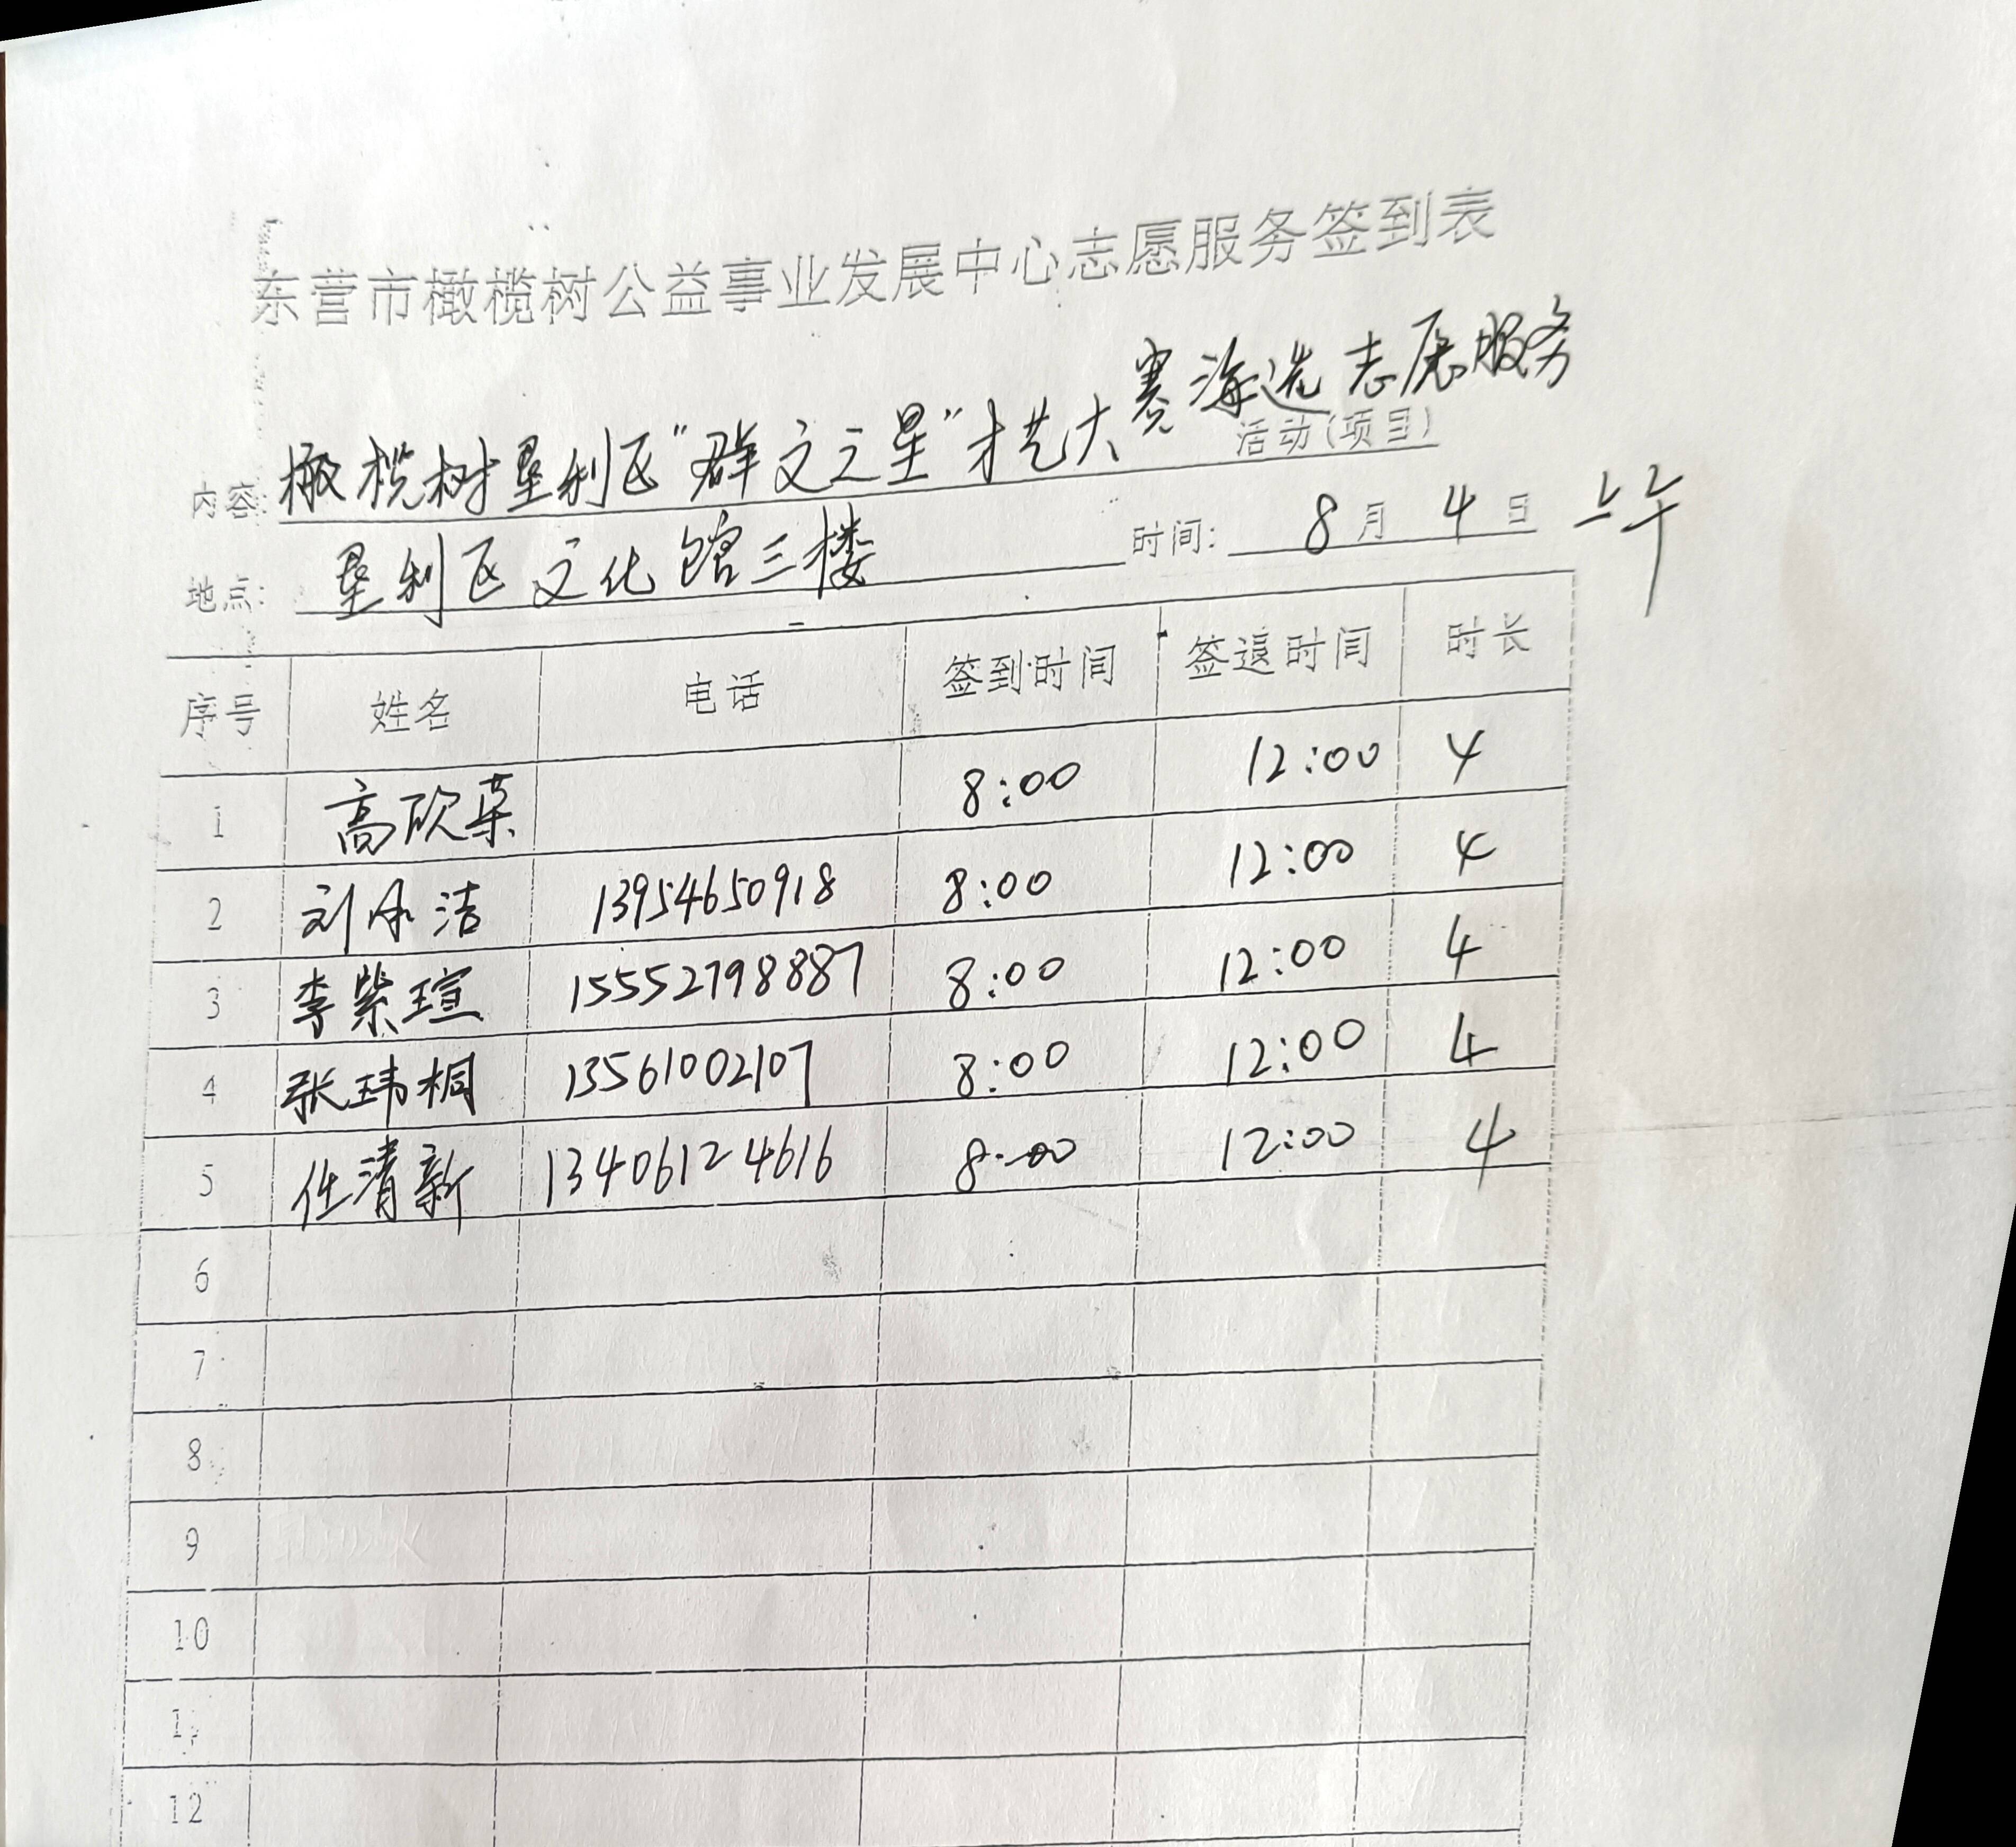 东营市橄榄树公益事业发展中心志愿服务签到表
内容: 橄榄树垦利区“群文之星”才艺大赛海选志愿服务 活动(项目)
地点: 垦利区文化馆三楼 时间: 8月4日 上午
序号 姓名 电话 签到时间 签退时间 时长
1 高欣 8:00 12:00 4
2 刘 洁 13954650918 8:00 12:00 4
3 李紫瑄 15552798887 8:00 12:00 4
4 张玮桐 13561002107 8:00 12:00 4
5 任清新 13406124616 8:00 12:00 4
6
7
8
9
10
11
12